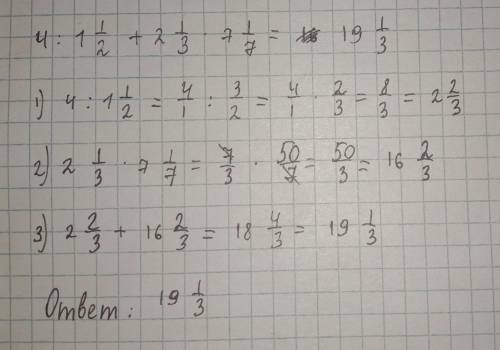 4 : 1 1/2 + 2 1/3 · 7 1/7 = 19 1/3
1) 4 : 1 1/2 = 4/1 : 3/2 = 4/1 · 2/3 = 8/3 = 2 2/3
2) 2 1/3 · 7 1/7 = 7/3 · 50/7 = 50/3 = 16 2/3
3) 2 2/3 + 16 2/3 = 18 4/3 = 19 1/3
Ответ: 19 1/3